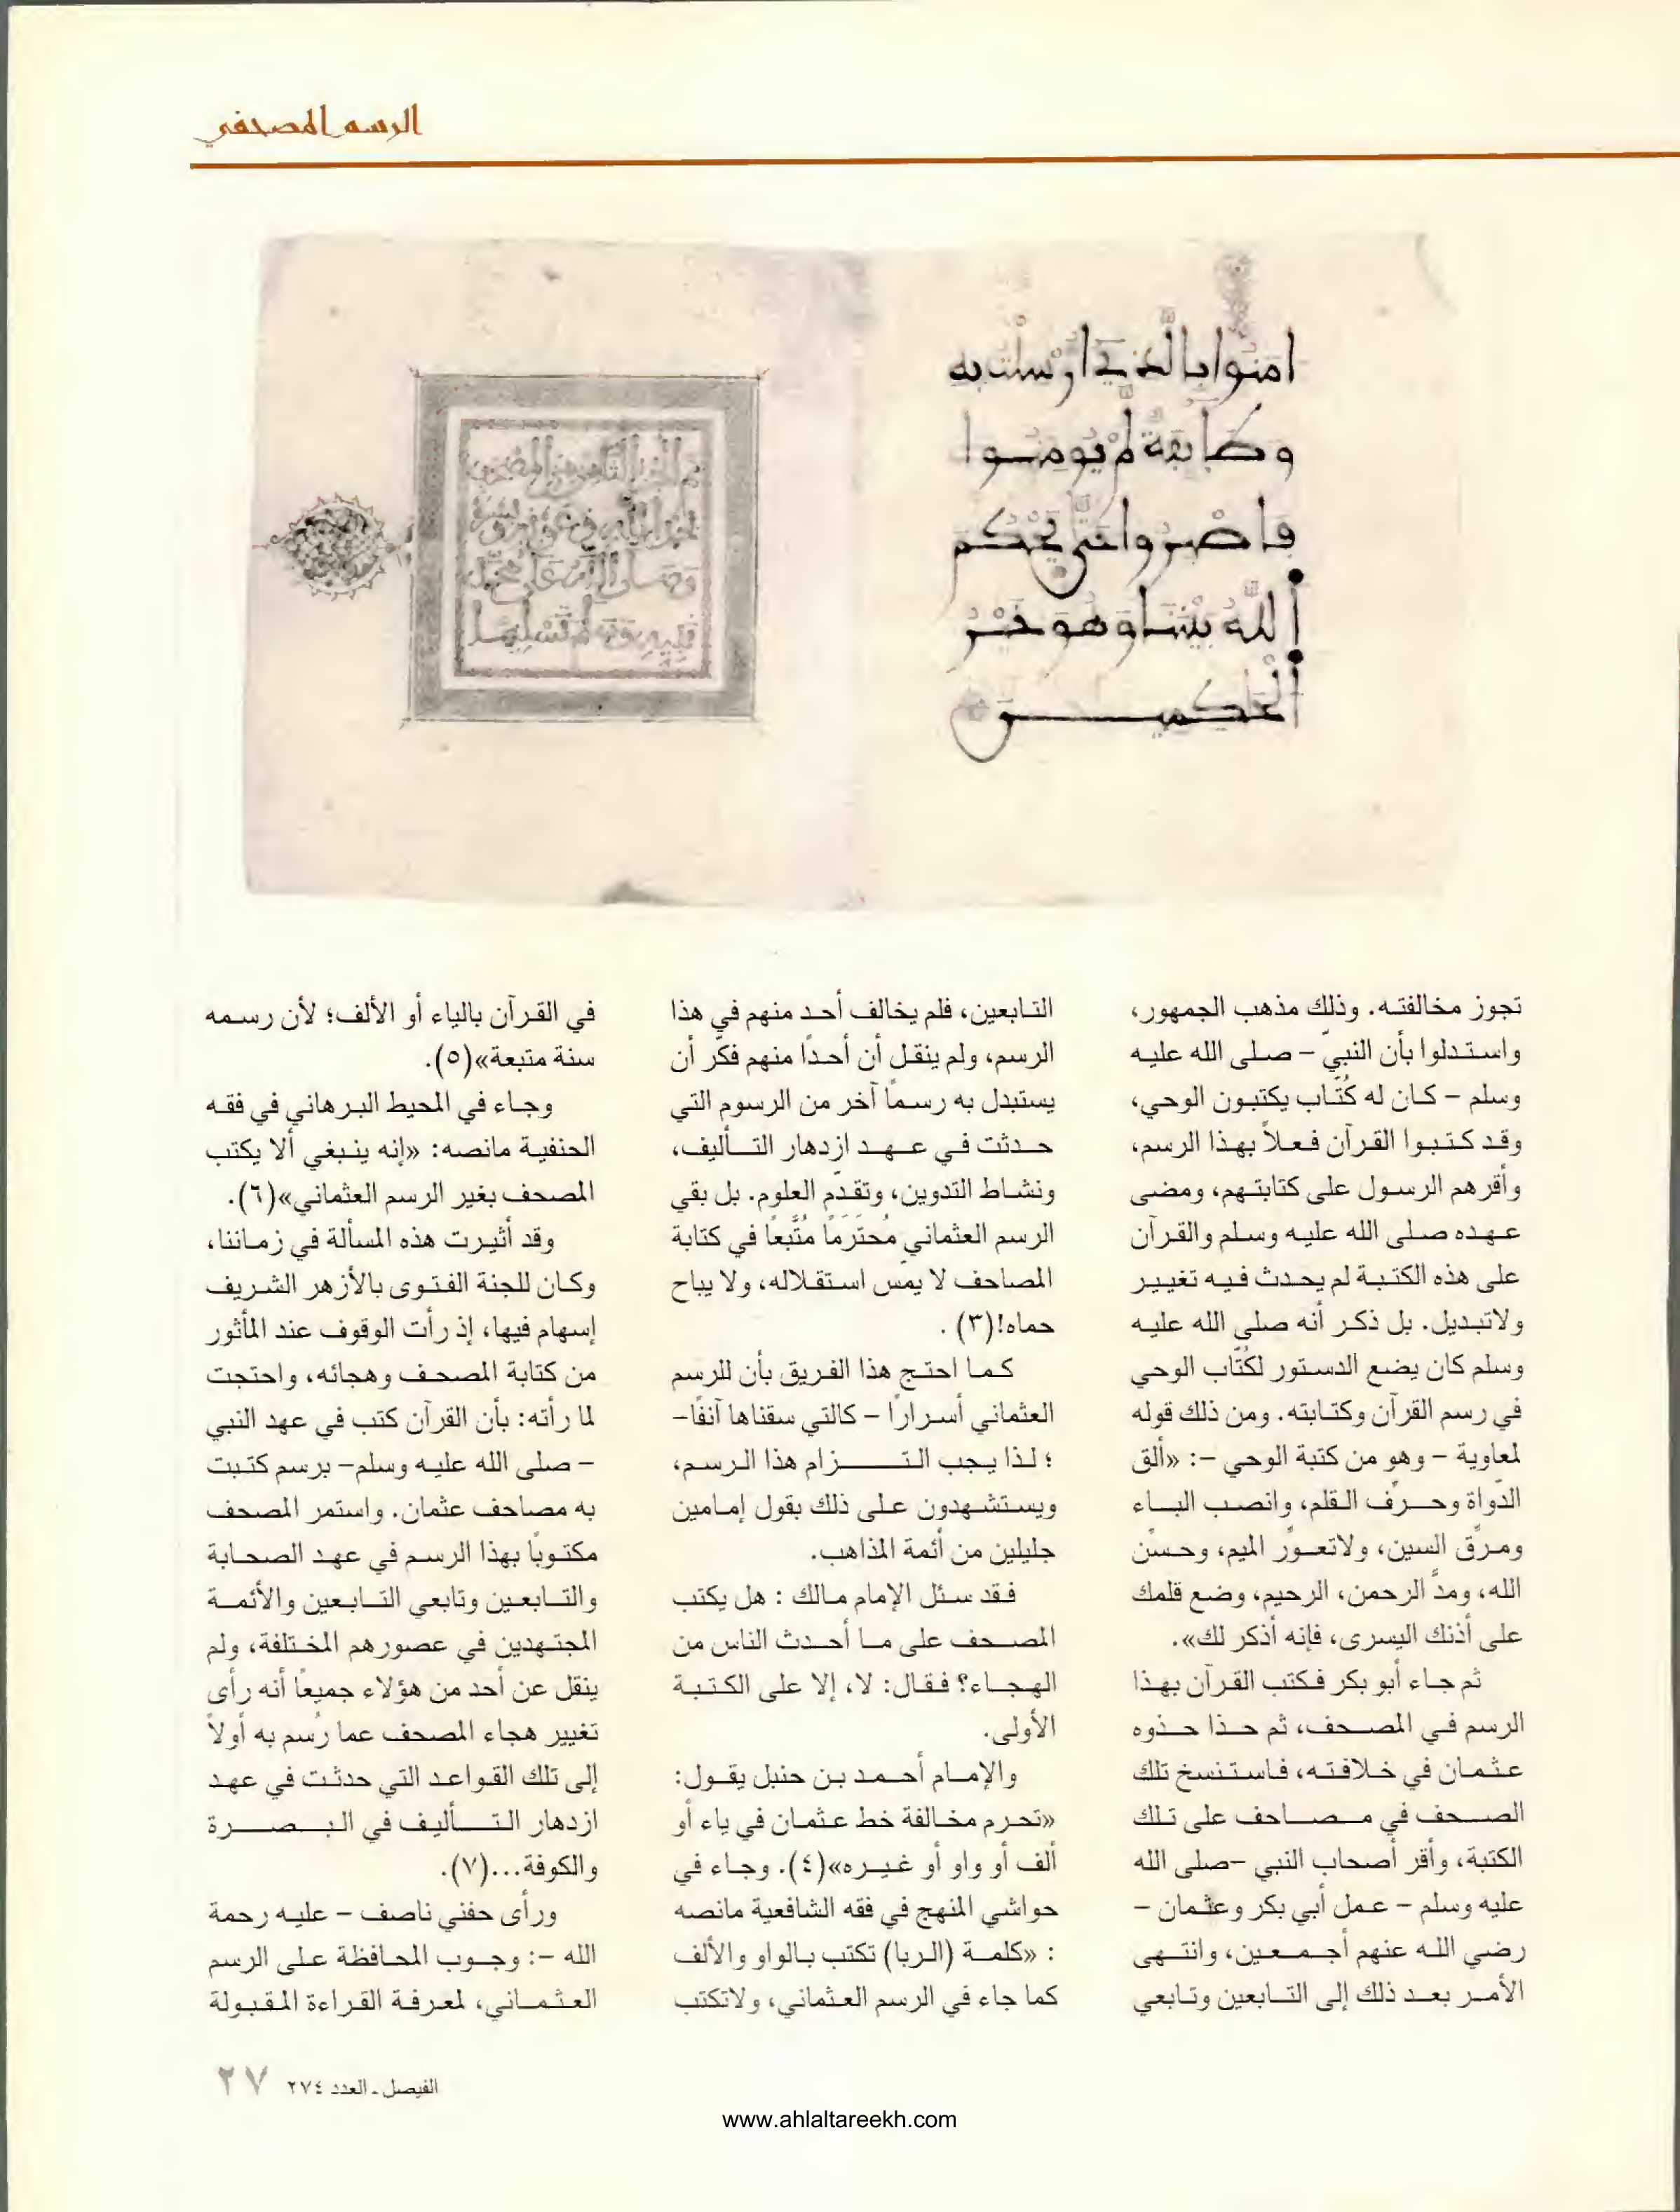 الرسم المصحفي
امنوا بالذي ارسلت به
وطايفة لم يومنوا
فاصبروا حتى يحكم
الله بيننا وهو خير
الحكمين
تجوز مخالفته. وذلك مذهب الجمهور،
واستدلوا بأن النبيّ – صلى الله عليه
وسلم – كان له كُتّاب يكتبون الوحي،
وقد كتبوا القرآن فعلاً بهذا الرسم،
وأقرهم الرسول على كتابتهم، ومضى
عهده صلى الله عليه وسلم والقرآن
على هذه الكتبة لم يحدث فيه تغيير
ولاتبديل. بل ذكر أنه صلى الله عليه
وسلم كان يضع الدستور لكُتّاب الوحي
في رسم القرآن وكتابته. ومن ذلك قوله
لمعاوية – وهو من كتبة الوحي –: «ألق
الدّواة وحرّف القلم، وانصب الباء
ومرّق السين، ولاتعوّر الميم، وحسّن
الله، ومدّ الرحمن، الرحيم، وضع قلمك
على أذنك اليسرى، فإنه أذكر لك».
ثم جاء أبو بكر فكتب القرآن بهذا
الرسم في المصحف، ثم حذا حذوه
عثمان في خلافته، فاستنسخ تلك
الصحف في مصاحف على تلك
الكتبة، وأقر أصحاب النبي –صلى الله
عليه وسلم – عمل أبي بكر وعثمان –
رضي الله عنهم أجمعين، وانتهى
الأمر بعد ذلك إلى التابعين وتابعي
التابعين، فلم يخالف أحد منهم في هذا
الرسم، ولم ينقل أن أحدًا منهم فكّر أن
يستبدل به رسمًا آخر من الرسوم التي
حدثت في عهد ازدهار التأليف،
ونشاط التدوين، وتقدّم العلوم. بل بقي
الرسم العثماني مُحتَرَمًا مُتَّبعًا في كتابة
المصاحف لا يمّس استقلاله، ولا يباح
حماه!(٣) .
كما احتج هذا الفريق بأن للرسم
العثماني أسرارًا – كالتي سقناها آنفًا–
؛ لذا يجب التزام هذا الرسم،
ويستشهدون على ذلك بقول إمامين
جليلين من أئمة المذاهب.
فقد سئل الإمام مالك : هل يكتب
المصحف على ما أحدث الناس من
الهجاء؟ فقال: لا، إلا على الكتبة
الأولى.
والإمام أحمد بن حنبل يقول:
«تحرم مخالفة خط عثمان في ياء أو
ألف أو واو أو غيره»(٤). وجاء في
حواشي المنهج في فقه الشافعية مانصه
: «كلمة (الربا) تكتب بالواو والألف
كما جاء في الرسم العثماني، ولاتكتب
في القرآن بالياء أو الألف؛ لأن رسمه
سنة متبعة»(٥).
وجاء في المحيط البرهاني في فقه
الحنفية مانصه: «إنه ينبغي ألا يكتب
المصحف بغير الرسم العثماني»(٦).
وقد أثيرت هذه المسألة في زماننا،
وكان للجنة الفتوى بالأزهر الشريف
إسهام فيها، إذ رأت الوقوف عند المأثور
من كتابة المصحف وهجائه، واحتجت
لما رأته: بأن القرآن كتب في عهد النبي
– صلى الله عليه وسلم– برسم كتبت
به مصاحف عثمان. واستمر المصحف
مكتوبًا بهذا الرسم في عهد الصحابة
والتابعين وتابعي التابعين والأئمة
المجتهدين في عصورهم المختلفة، ولم
ينقل عن أحد من هؤلاء جميعًا أنه رأى
تغيير هجاء المصحف عما رُسم به أولاً
إلى تلك القواعد التي حدثت في عهد
ازدهار التأليف في البصرة
والكوفة...(٧).
ورأى حفني ناصف – عليه رحمة
الله –: وجوب المحافظة على الرسم
العثماني، لمعرفة القراءة المقبولة
الفيصل ـ العدد ٢٧٤ ٢٧
www.ahlaltareekh.com